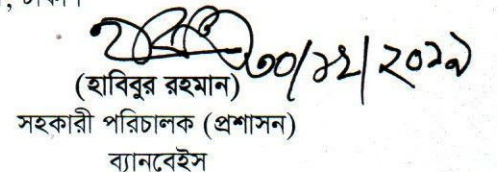 ৩০/১২/২০১৯
(হাবিবুর রহমান)
সহকারী পরিচালক (প্রশাসন)
ব্যানবেইস